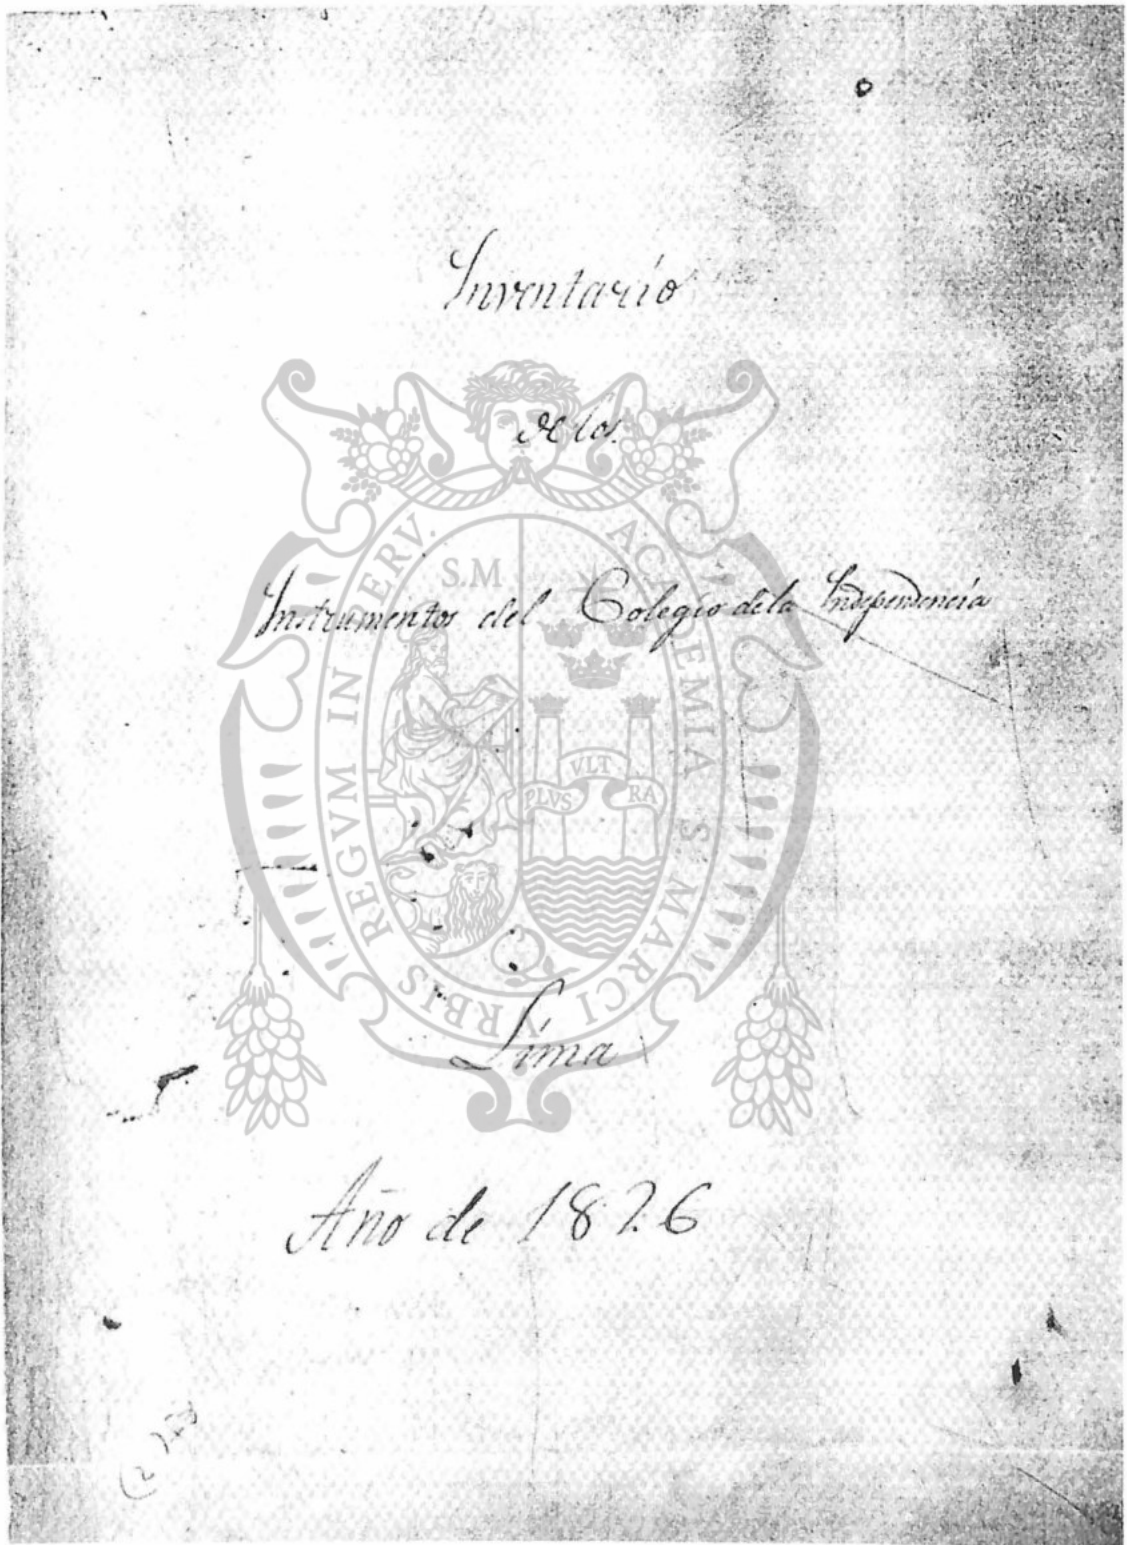 Inventario
de los
Instrumentos del Colegio de la Independencia
Lima
Año de 1826
S.M
ACADEMIA S MARCI VRBIS REGVM IN
SERV.
PLVS VLT RA
(2)